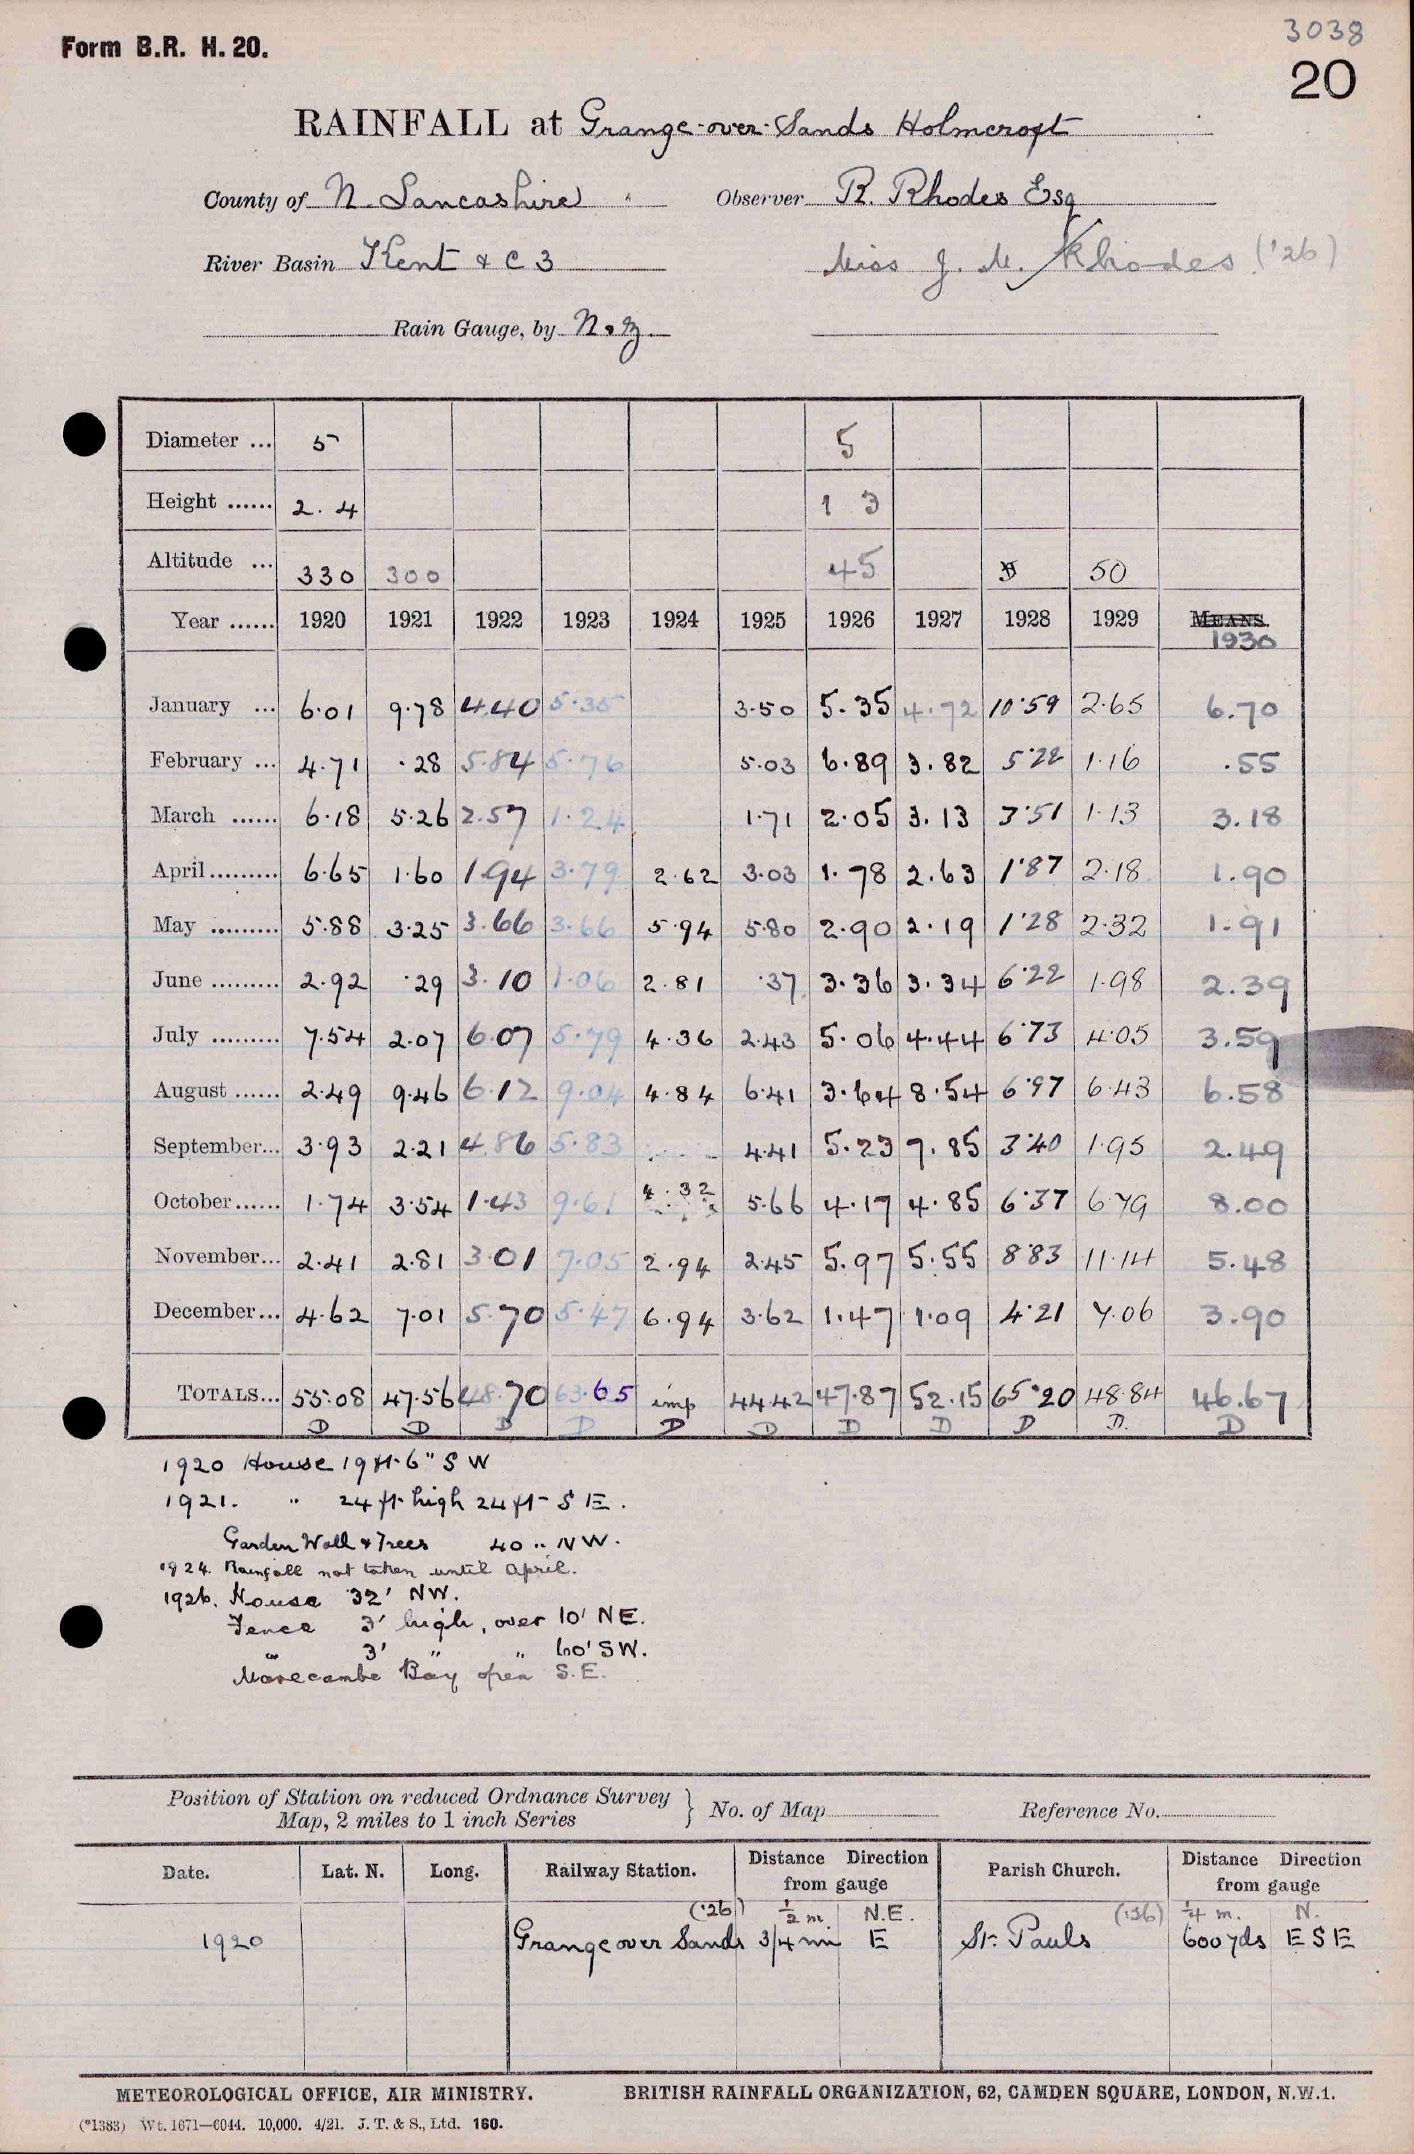 3038
Form B.R. H. 20.
20
RAINFALL at Grange-over-Sands Holmcroft
County of N. Lancashire Observer R. Rhodes Esq
River Basin Kent & C 3 Miss J. M. Rhodes ('26)
Rain Gauge, by N. & Z.
Diameter ... 5 5
Height ...... 2. 4 1 3
Altitude ... 330 300 45 50
Year ...... 1920 1921 1922 1923 1924 1925 1926 1927 1928 1929 MEANS.
1930
January ... 6.01 9.78 4.40 5.35 3.50 5.35 4.72 10.59 2.65 6.70
February ... 4.71 .28 5.84 5.76 5.03 6.89 3.82 5.22 1.16 .55
March ...... 6.18 5.26 2.57 1.24 1.71 2.05 3.13 3.51 1.13 3.18
April ......... 6.65 1.60 1.94 3.79 2.62 3.03 1.78 2.63 1.87 2.18 1.90
May ......... 5.88 3.25 3.66 3.66 5.94 5.80 2.90 2.19 1.28 2.32 1.91
June ......... 2.92 .29 3.10 1.06 2.81 .37 3.36 3.34 6.22 1.98 2.39
July ......... 7.54 2.07 6.07 5.79 4.36 2.43 5.06 4.44 6.73 4.05 3.59
August ...... 2.49 9.46 6.12 9.04 4.84 6.41 3.64 8.54 6.97 6.43 6.58
September... 3.93 2.21 4.86 5.83 4.41 5.23 7.85 3.40 1.95 2.49
October...... 1.74 3.54 1.43 9.61 4.32 5.66 4.17 4.85 6.37 6.79 8.00
November... 2.41 2.81 3.01 7.05 2.94 2.45 5.97 5.55 8.83 11.14 5.48
December... 4.62 7.01 5.70 5.47 6.94 3.62 1.47 1.09 4.21 7.06 3.90
TOTALS... 55.08 47.56 48.70 63.65 imp 44.42 47.87 52.15 65.20 48.84 46.67
D D D D D D D D D D. D
1920 House 19 ft. 6" S W
1921. " 24 ft. high 24 ft- S E.
Garden Wall & Trees 40 " N W.
1924. Rainfall not taken until April.
1926. House 32' NW.
Fence 3' high, over 10' NE.
" 3' " " 60' SW.
Morecambe Bay open S.E.
Position of Station on reduced Ordnance Survey
Map, 2 miles to 1 inch Series } No. of Map Reference No.
Date. Lat. N. Long. Railway Station. Distance Direction from gauge Parish Church. Distance Direction from gauge
('26) 1/2 m. N.E. ('26) 1/4 m. N.
1920 Grange over Sands 3/4 mi E St. Pauls 600 yds E S E
METEOROLOGICAL OFFICE, AIR MINISTRY. BRITISH RAINFALL ORGANIZATION, 62, CAMDEN SQUARE, LONDON, N.W.1.
(*1383) Wt. 1671—6044. 10,000. 4/21. J. T. & S., Ltd. 160.